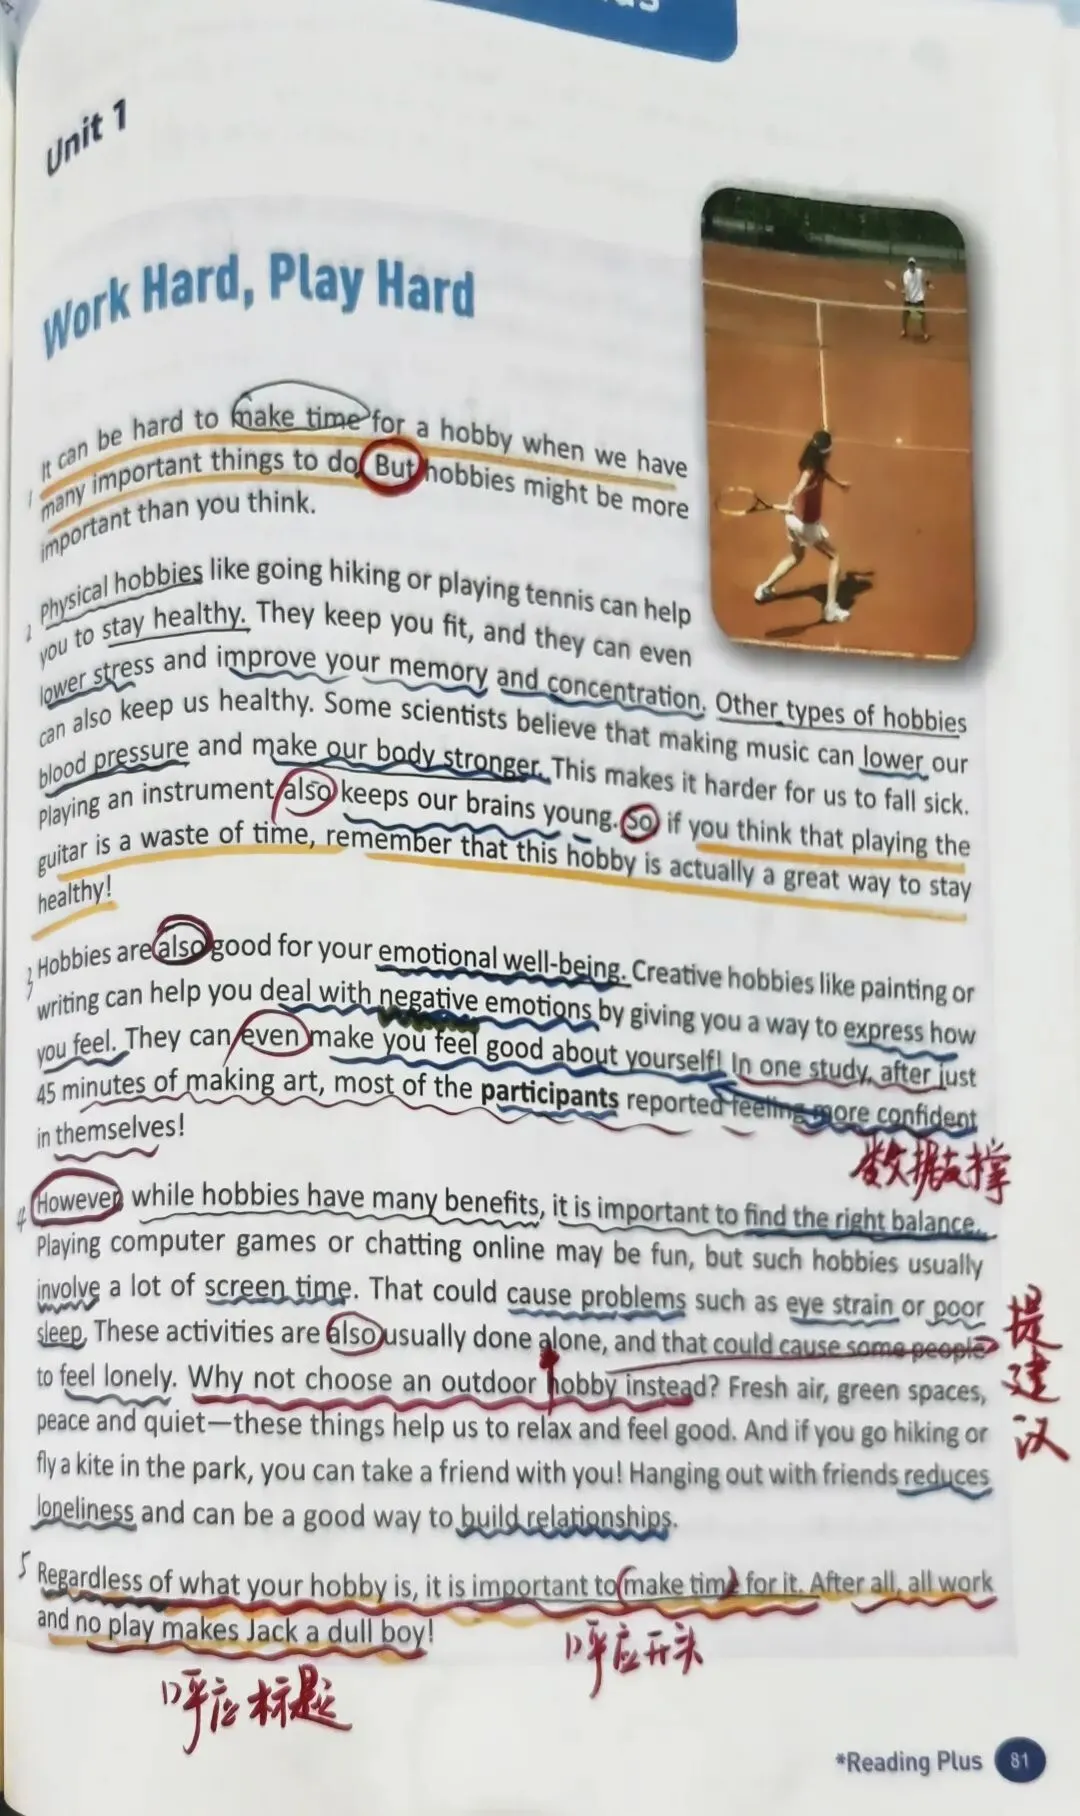 Unit 1
Work Hard, Play Hard
It can be hard to make time for a hobby when we have
1 many important things to do. But hobbies might be more
important than you think.
Physical hobbies like going hiking or playing tennis can help
2 you to stay healthy. They keep you fit, and they can even
lower stress and improve your memory and concentration. Other types of hobbies
can also keep us healthy. Some scientists believe that making music can lower our
blood pressure and make our body stronger. This makes it harder for us to fall sick.
Playing an instrument also keeps our brains young. So if you think that playing the
guitar is a waste of time, remember that this hobby is actually a great way to stay
healthy!
3 Hobbies are also good for your emotional well-being. Creative hobbies like painting or
writing can help you deal with negative emotions by giving you a way to express how
you feel. They can even make you feel good about yourself! In one study, after just
45 minutes of making art, most of the participants reported feeling more confident
in themselves!
数据支撑
4 However, while hobbies have many benefits, it is important to find the right balance.
Playing computer games or chatting online may be fun, but such hobbies usually
involve a lot of screen time. That could cause problems such as eye strain or poor
sleep. These activities are also usually done alone, and that could cause some people
to feel lonely. Why not choose an outdoor hobby instead? Fresh air, green spaces,
peace and quiet—these things help us to relax and feel good. And if you go hiking or
fly a kite in the park, you can take a friend with you! Hanging out with friends reduces
loneliness and can be a good way to build relationships.
提
建
汉
5 Regardless of what your hobby is, it is important to make time for it. After all, all work
and no play makes Jack a dull boy!
呼应开头
呼应标题
*Reading Plus 81